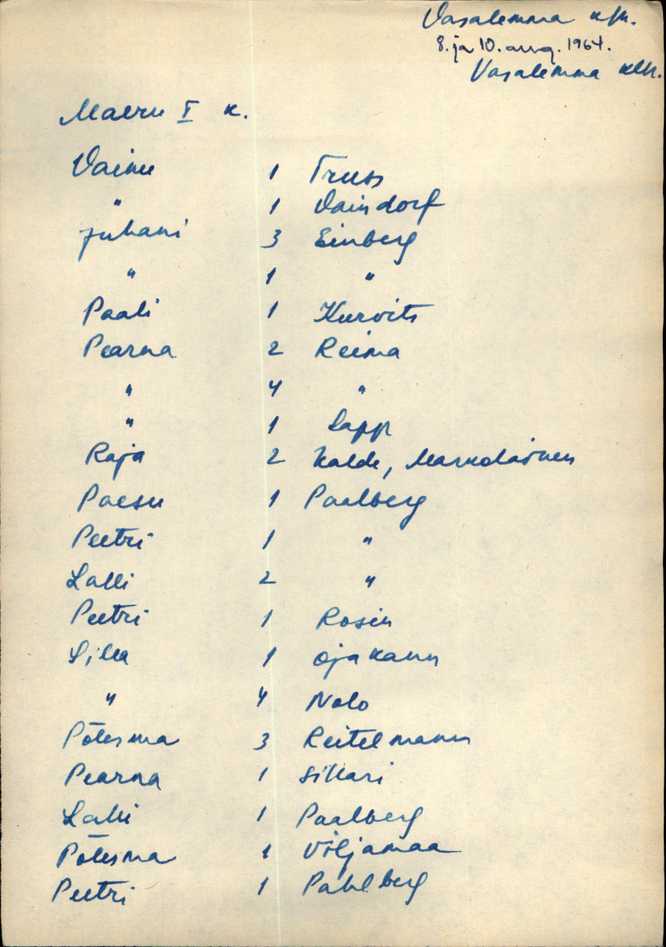 Vasalemma k/n.
8. ja 10. aug. 1964.
Vasalemma
Maeru I k.
Vainu 1 Truss
" 1 Vaindorf
Juhani 3 Einberg
" 1 "
Paali 1 Kurvits
Pearna 2 Reima
" 4 "
" 1 Sapp
Raja 2 Kalde,
Paesu 1 Paalberg
Peetri 1 "
Lalli 2 "
Peetri 1 Rosin
Silla 1 Ojakann
" 4 Nolo
Põlesma 3 Reitelmann
Pearna 1 Sillari
Lalli 1 Paalberg
Põlesma 1 Viljamaa
Peetri 1 Pahlberg